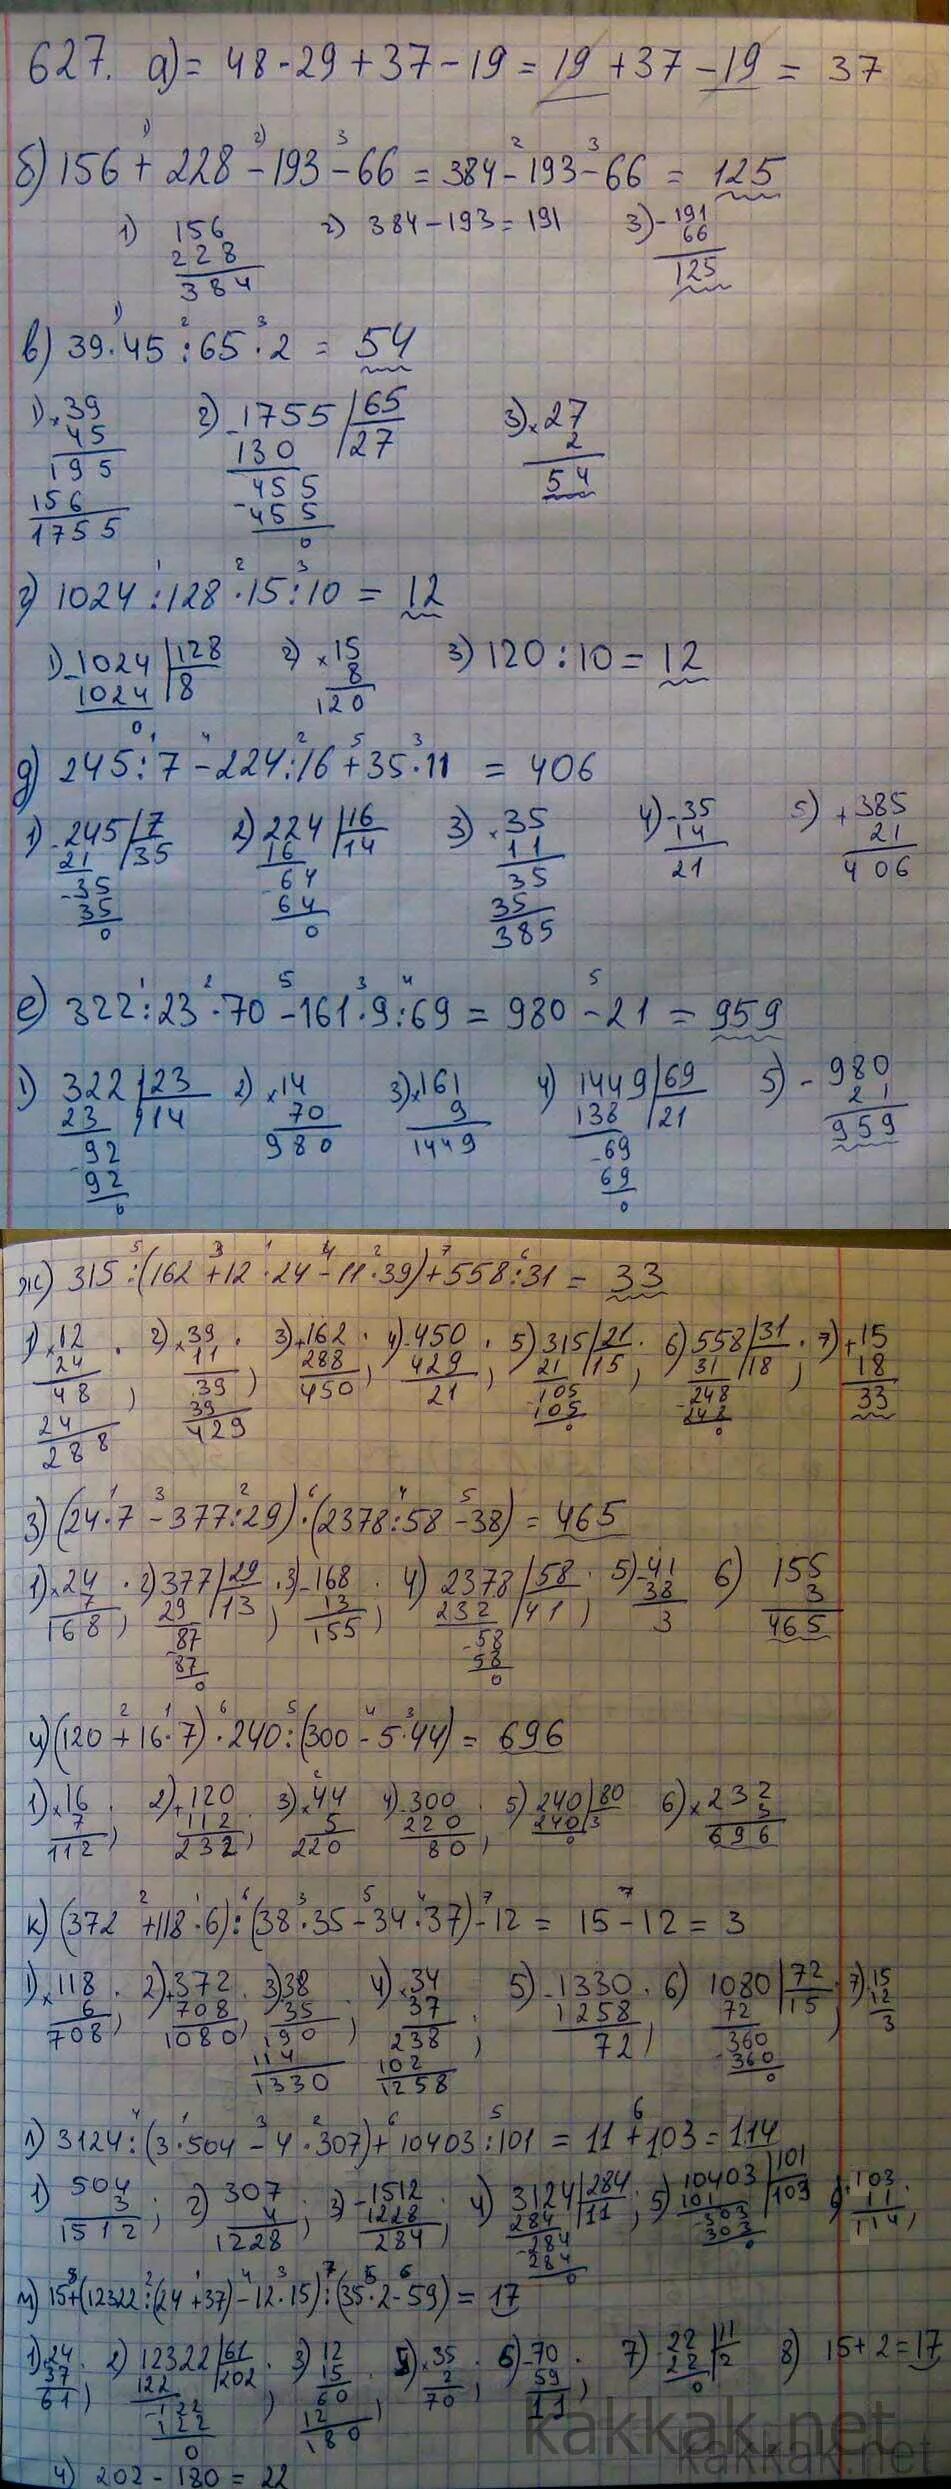 627. а) = 48 - 29 + 37 - 19 = 19 + 37 - 19 = 37
б) 156 + 228 - 193 - 66 = 384 - 193 - 66 = 125
1) 156 2) 384 - 193 = 191 3) - 191
228 66
384 125
в) 39 · 45 : 65 · 2 = 54
1) × 39 2) - 1755 | 65 3) × 27
45 130 | 27 2
195 455 54
156 - 455
1755 0
г) 1024 : 128 · 15 : 10 = 12
1) - 1024 | 128 2) × 15 3) 120 : 10 = 12
1024 | 8 8
0 120
д) 245 : 7 - 224 : 16 + 35 · 11 = 406
1) - 245 | 7 2) 224 | 16 3) × 35 4) - 35 5) + 385
21 | 35 16 | 14 11 14 21
- 35 - 64 35 21 406
35 64 35
0 0 385
е) 322 : 23 · 70 - 161 · 9 : 69 = 980 - 21 = 959
1) 322 | 23 2) × 14 3) × 161 4) 1449 | 69 5) - 980
23 | 14 70 9 138 | 21 21
- 92 980 1449 - 69 959
92 69
0 0
ж) 315 : (162 + 12 · 24 - 11 · 39) + 558 : 31 = 33
1) × 12 ; 2) × 39 ; 3) + 162 ; 4) - 450 ; 5) 315 | 21 ; 6) 558 | 31 ; 7) + 15
24 11 288 429 21 | 15 31 | 18 18
48 39 450 21 105 248 33
24 39 - 105 - 248
288 429 0 0
з) (24 · 7 - 377 : 29) · (2378 : 58 - 38) = 465
1) × 24 ; 2) 377 | 29 ; 3) - 168 ; 4) 2378 | 58 ; 5) - 41 6) 155
7 29 | 13 13 232 | 41 38 3
168 - 87 155 - 58 3 465
87 58
0 0
и) (120 + 16 · 7) · 240 : (300 - 5 · 44) = 696
1) × 16 ; 2) + 120 ; 3) × 44 4) - 300 ; 5) 240 | 80 6) × 232
7 112 5 220 240 | 3 3
112 232 220 80 0 696
к) (372 + 118 · 6) : (38 · 35 - 34 · 37) - 12 = 15 - 12 = 3
1) × 118 ; 2) + 372 ; 3) 38 ; 4) × 34 ; 5) - 1330 ; 6) 1080 | 72 ; 7) 15
6 708 35 37 1258 72 | 15 12
708 1080 190 238 72 360 3
114 102 - 360
1330 1258 0
л) 3124 : (3 · 504 - 4 · 307) + 10403 : 101 = 11 + 103 = 114
1) 504 ; 2) 307 ; 3) - 1512 ; 4) 3124 | 284 ; 5) 10403 | 101 6) 103
3 4 1228 284 | 11 101 | 103 11
1512 1228 284 - 284 - 303 114
284 303
0 0
м) 15 + (12322 : (24 + 37) - 12 · 15) : (35 · 2 - 59) = 17
1) + 24 ; 2) 12322 | 61 ; 3) 12 ; 5) × 35 ; 6) - 70 ; 7) - 22 | 11 8) 15 + 2 = 17
37 122 | 202 15 2 59 22 | 2
61 - 122 60 70 11 0
122 12
0 180
4) 202 - 180 = 22
kakkak.net
kakkak.net